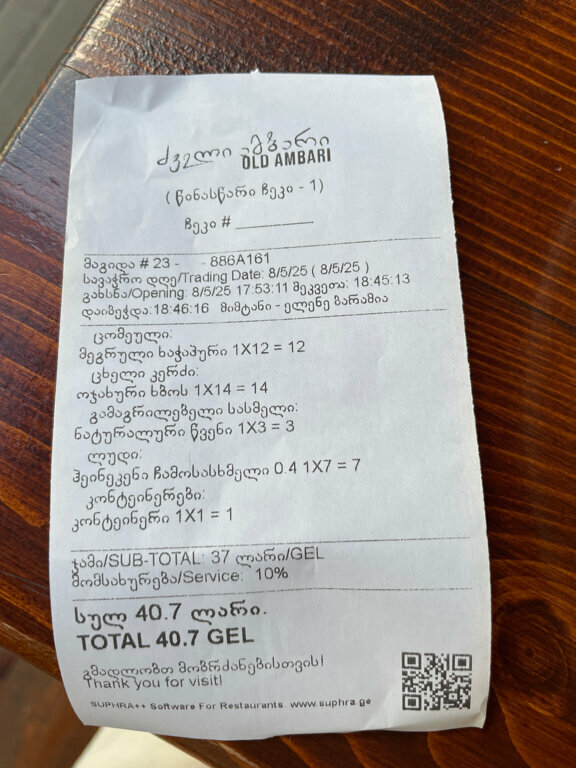 ძველი ამბარი
OLD AMBARI
( წინასწარი ჩეკი - 1)
ჩეკი # ________
მაგიდა # 23 - - 886A161
სავაჭრო დღე/Trading Date: 8/5/25 ( 8/5/25 )
გახსნა/Opening: 8/5/25 17:53:11 შეკვეთა: 18:45:13
დაიბეჭდა:18:46:16 მიმტანი - ელენე ზარამია
ცომეული:
მეგრული ხაჭაპური 1X12 = 12
ცხელი კერძი:
ოჯახური ხბოს 1X14 = 14
გამაგრილებელი სასმელი:
ნატურალური წვენი 1X3 = 3
ლუდი:
ჰეინეკენი ჩამოსასხმელი 0.4 1X7 = 7
კონტეინერები:
კონტეინერი 1X1 = 1
ჯამი/SUB-TOTAL: 37 ლარი/GEL
მომსახურება/Service: 10%
სულ 40.7 ლარი.
TOTAL 40.7 GEL
გმადლობთ მობრძანებისთვის!
Thank you for visit!
SUPHRA++ Software For Restaurants. www.suphra.ge